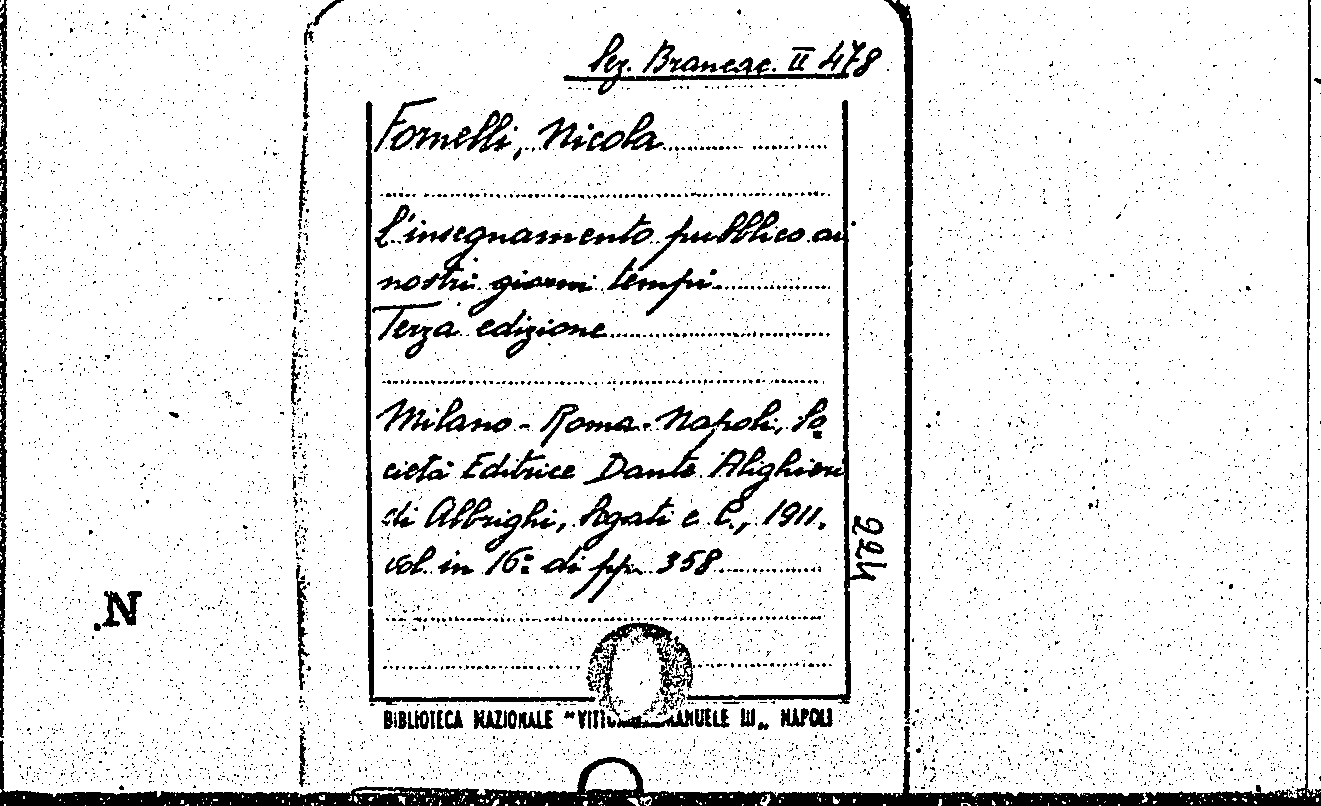 Sez. Brancac. II 478
Fornelli, Nicola
L'insegnamento pubblico ai
nostri giorni tempi.
Terza edizione
Milano - Roma - Napoli, So
cietà Editrice Dante Alighieri
di Albrighi, Segati e C., 1911.
vol. in 16° di pp. 358
224
N.
BIBLIOTECA NAZIONALE "VITTORIO EMANUELE III„ NAPOLI